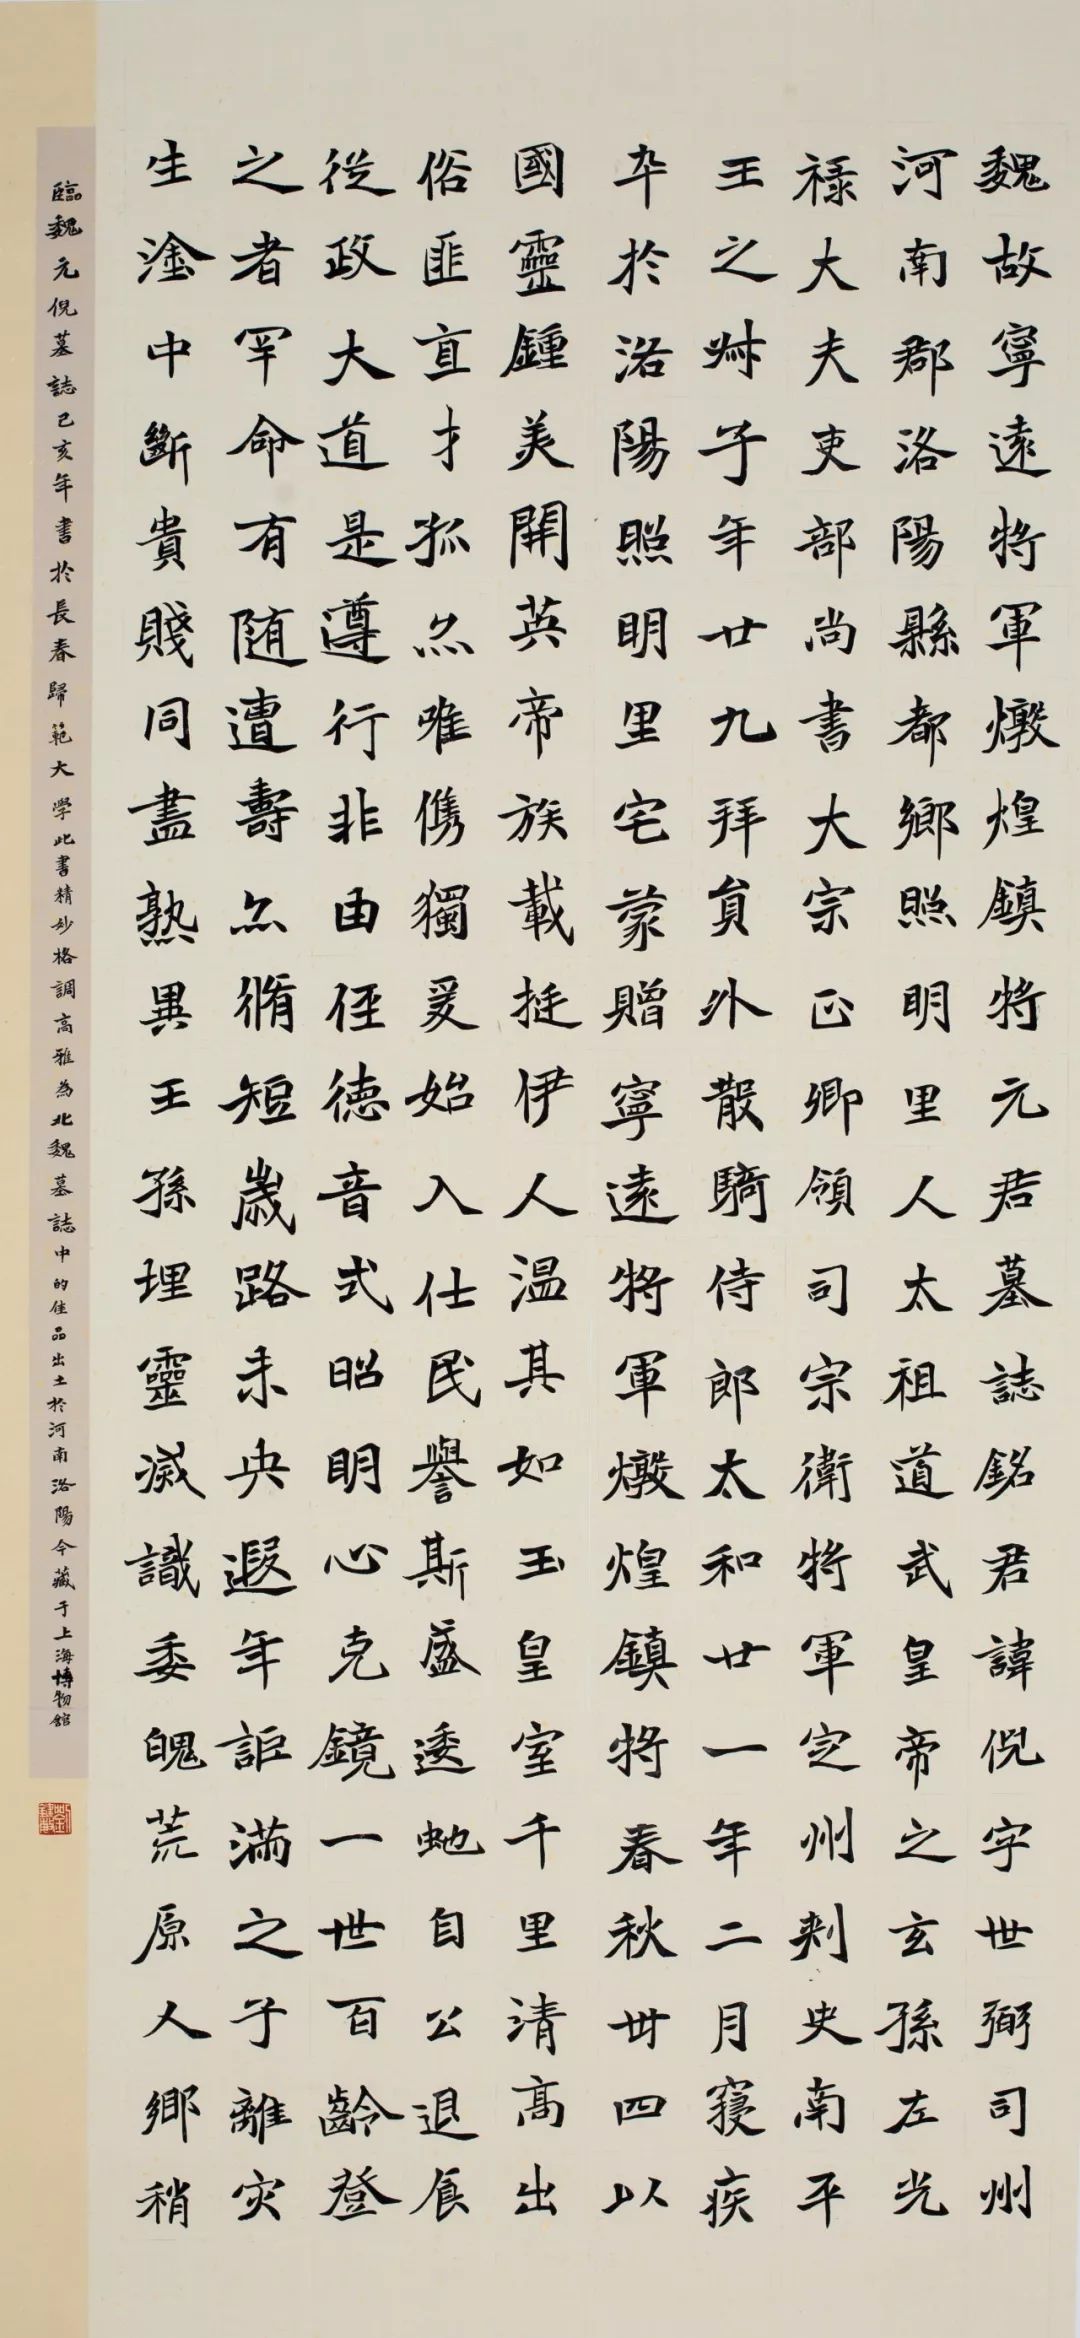 魏故寧遠將軍燉煌鎮將元君墓誌銘君諱倪字世弼司州
河南郡洛陽縣都鄉照明里人太祖道武皇帝之玄孫左光
祿大夫吏部尚書大宗正卿領司宗衛將軍定州刾史南平
王之叔子年廿九拜員外散騎侍郎太和廿一年二月寝疾
卒於洛陽照明里宅蒙贈寧遠將軍燉煌鎮將春秋卅四以
國靈鍾美開英帝族載挺伊人温其如玉皇室千里清高出
俗匪直才孤亦唯儁獨爰始入仕民譽斯盛逶虵自公退食
従政大道是遵行非由徑徳音式昭明心克鏡一世百齡登
之者罕命有随遭壽亦脩短歳路未央遐年詎滿之子離灾
生塗中斷貴賤同盡孰異王孫埋靈滅識委魄荒原人鄉稍
臨魏元倪墓誌己亥年書於長春歸範大學此書精妙格調高雅為北魏墓誌中的佳品出土於河南洛陽今藏于上海博物館